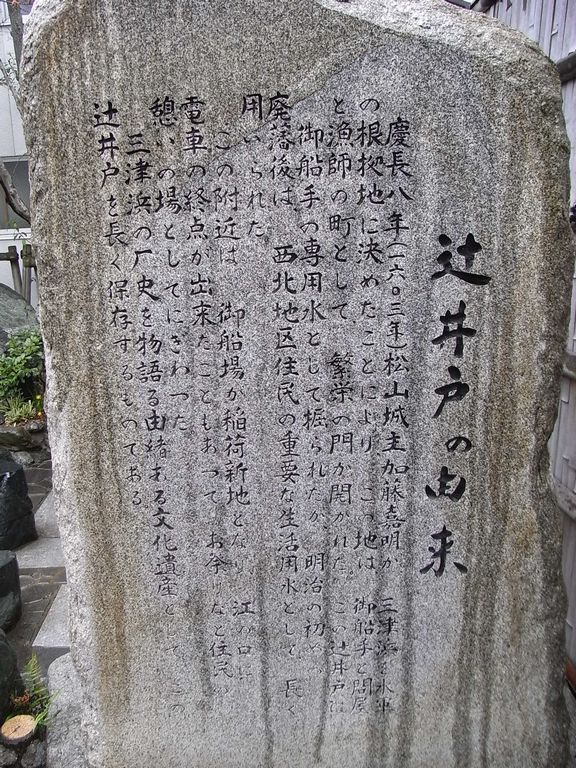 辻井戸の由来
慶長八年(一六〇三年)松山城主加藤嘉明が 三津浜を水軍
の根拠地に決めたことにより この地は 御船手と問屋
と漁師の町として 繁栄の門が開かれた この辻井戸は
御船手の専用水として掘られたが 明治の初め
廃藩後は 西北地区住民の重要な生活用水として 長く
用いられた
この附近は 御船場が稲荷新地となり 江の口に
電車の終点が出来たこともあって お参りなど住民の
憩いの場としてにぎわった
三津浜の厂史を物語る由緒ある文化遺産として この
辻井戸を長く保存するものである